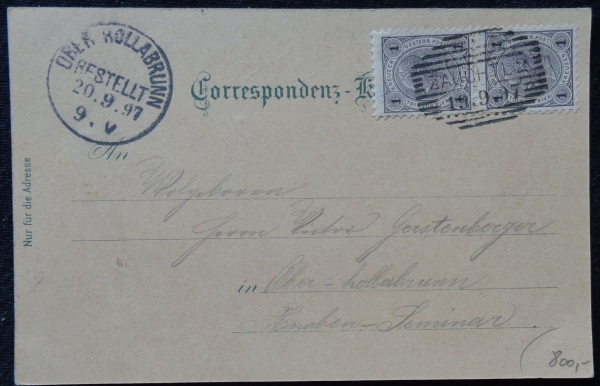 OBER HOLLABRUNN
BESTELLT
20.9.97
9. V
Correspondenz-K
1
1
1
1
19.9.97
An
Nur für die Adresse
Wolgeboren
Herrn Victor Gerstenberger
in Ober-hollabrunn
Knaben-Seminar
800,-